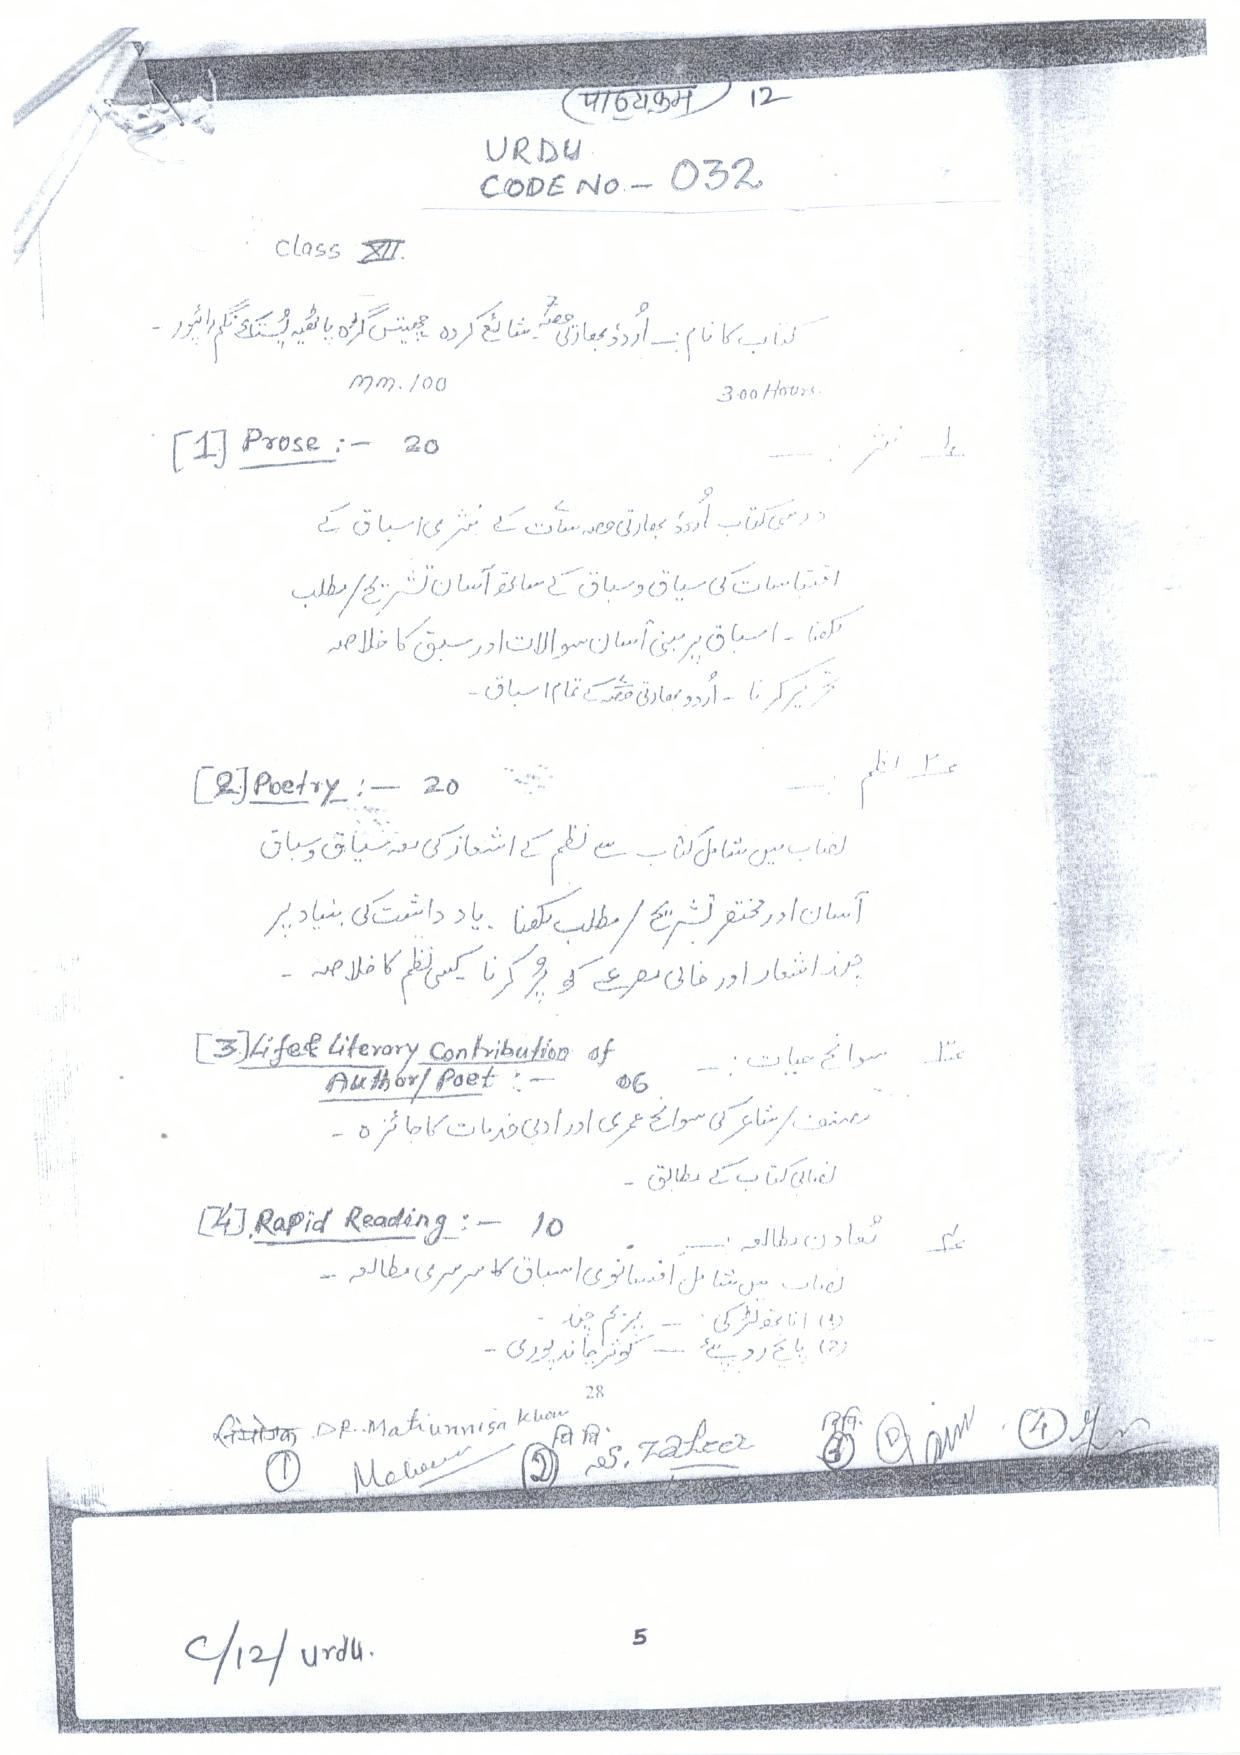 पाठ्यक्रम 12
URDU
CODE NO. - 032
Class XII.
کتاب کا نام :۔ اُردو بھارتی حصّہ شائع کردہ چھتیس گڑھ پاٹھیہ پُستک نگم رائپور ۔
mm. 100 3.00 Hours.
[1] Prose :- 20 ۱؎ نثر :۔
درسی کتاب اُردو بھارتی حصہ سات کے نثری اسباق کے
اقتباسات کی سیاق و سباق کے ساتھ آسان تشریح / مطلب
لکھنا ۔ اسباق پر مبنی آسان سوالات اور سبق کا خلاصہ
تحریر کرنا ۔ اُردو بھارتی حصہ کے تمام اسباق ۔
[2] Poetry :- 20 ۲؎ نظم :۔
نصاب میں شامل کتاب سے نظم کے اشعار کی معہ سیاق و سباق
آسان اور مختصر تشریح / مطلب لکھنا ۔ یاد داشت کی بنیاد پر
چند اشعار اور خالی مصرعے کو پُر کرنا کسی نظم کا خلاصہ ۔
[3] Life & Literary Contribution of ۳؎ سوانح حیات :۔
Author/Poet :- 06
مصنف / شاعر کی سوانح عمری اور ادبی خدمات کا جائزہ ۔
نصابی کتاب کے مطابق ۔
[4] Rapid Reading :- 10 ۴؎ تُعاون مطالعہ :۔
نصاب میں شامل افسانوی اسباق کا سرسری مطالعہ ۔
(1) اناتھ لڑکی — پریم چند ۔
(2) پانچ روپئے — کوثر چاند پوری ۔
28
संयोजक DR. Matiunnisa Khan वि वि. वि.वि.
① ② S. Zafeer ③ ④
C/12/ urdu. 5